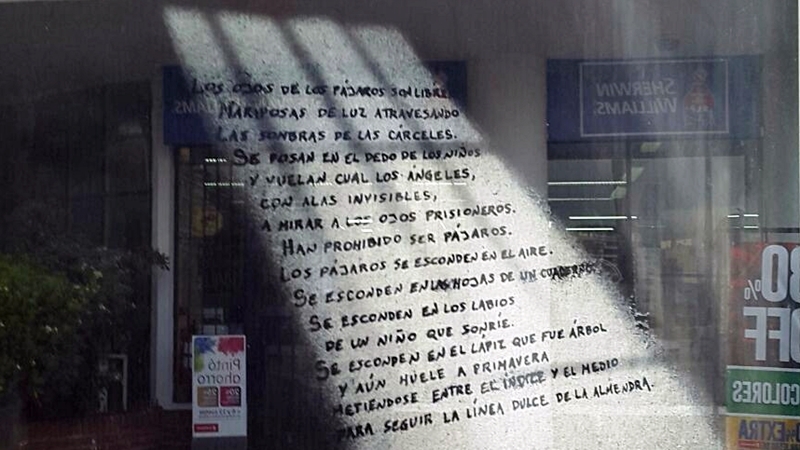 LOS OJOS DE LOS PÁJAROS SON LIBRE
MARIPOSAS DE LUZ ATRAVESANDO
LAS SOMBRAS DE LAS CÁRCELES.
SE POSAN EN EL DEDO DE LOS NIÑOS
Y VUELAN CUAL LOS ÁNGELES,
CON ALAS INVISIBLES,
A MIRAR A LOS OJOS PRISIONEROS.
HAN PROHIBIDO SER PÁJAROS.
LOS PÁJAROS SE ESCONDEN EN EL AIRE.
SE ESCONDEN EN LAS HOJAS DE UN CUADERNO.
SE ESCONDEN EN LOS LABIOS
DE UN NIÑO QUE SONRÍE.
SE ESCONDEN EN EL LÁPIZ QUE FUE ÁRBOL
Y AÚN HUELE A PRIMAVERA
METIÉNDOSE ENTRE EL ÍNDICE Y EL MEDIO
PARA SEGUIR LA LÍNEA DULCE DE LA ALMENDRA.
SHERWIN
WILLIAMS.
Pintó
ahorro
80%
OFF
COLORES
EXTRA